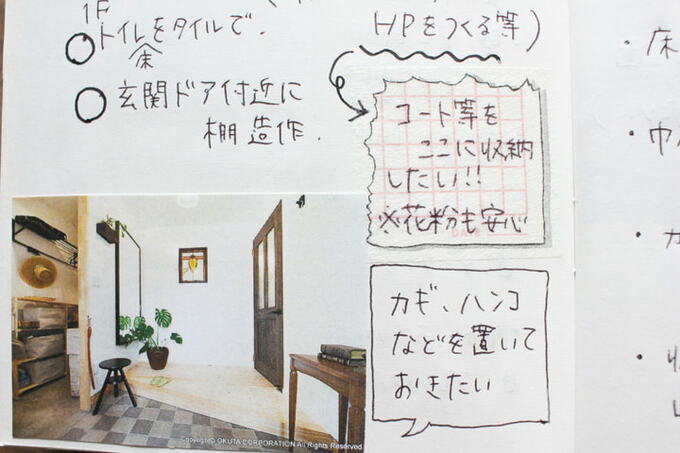 1F
トイレをタイルで.
床
玄関ドア付近に
棚造作.
HPをつくる等)
コート等を
ここに収納
したい!!
※花粉も安心
DATE
カギ、ハンコ
などを置いて
おきたい
Copyright© OKUTA CORPORATION All Rights Reserved
・床